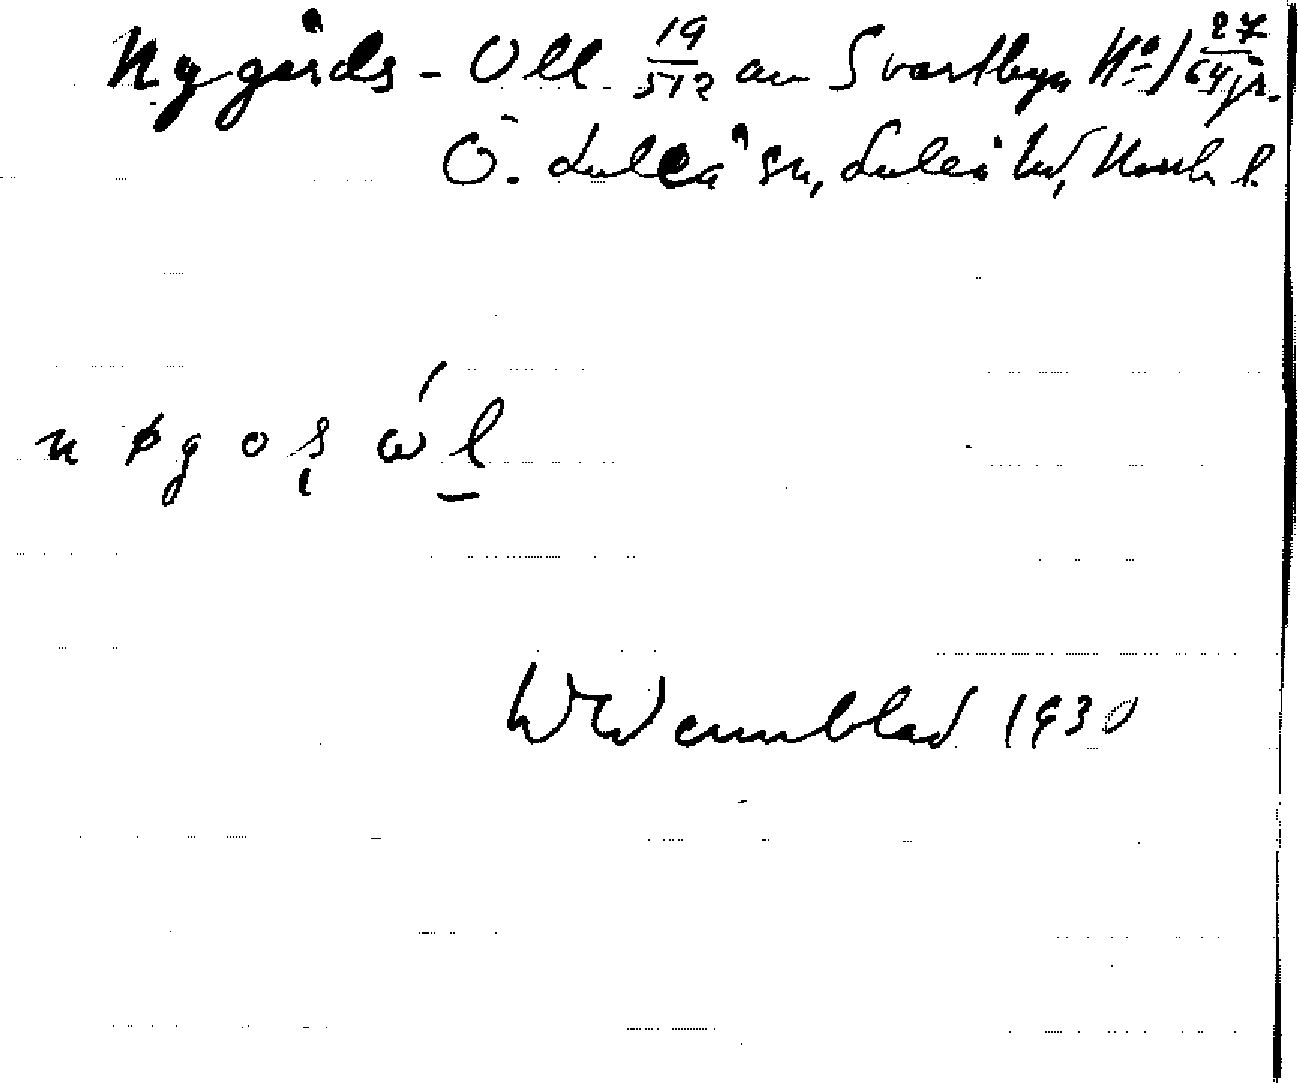 Nygårds-Oll 19/512 av Svartbyn Nº 1 27/64 jr.
Ö. Luleå sn, Luleå hd, Norrb. l.
W Wennblad 1930